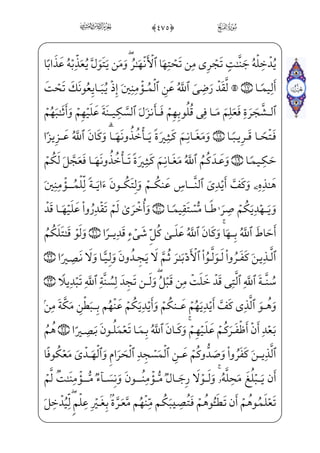 ﴿٤٧٥﴾
يُدْخِلْهُ جَنَّٰتٍ تَجْرِى مِن تَحْتِهَا ٱلْأَنْهَٰرُ ۖ وَمَن يَتَوَلَّ يُعَذِّبْهُ عَذَابًا
أَلِيمًا ١٧ ۞ لَّقَدْ رَضِىَ ٱللَّهُ عَنِ ٱلْمُؤْمِنِينَ إِذْ يُبَايِعُونَكَ تَحْتَ
ٱلشَّجَرَةِ فَعَلِمَ مَا فِى قُلُوبِهِمْ فَأَنزَلَ ٱلسَّكِينَةَ عَلَيْهِمْ وَأَثَٰبَهُمْ
فَتْحًا قَرِيبًا ١٨ وَمَغَانِمَ كَثِيرَةً يَأْخُذُونَهَا ۗ وَكَانَ ٱللَّهُ عَزِيزًا
حَكِيمًا ١٩ وَعَدَكُمُ ٱللَّهُ مَغَانِمَ كَثِيرَةً تَأْخُذُونَهَا فَعَجَّلَ لَكُمْ
هَٰذِهِۦ وَكَفَّ أَيْدِىَ ٱلنَّاسِ عَنكُمْ وَلِتَكُونَ ءَايَةً لِّلْمُؤْمِنِينَ
وَيَهْدِيَكُمْ صِرَٰطًا مُّسْتَقِيمًا ٢٠ وَأُخْرَىٰ لَمْ تَقْدِرُوا۟ عَلَيْهَا قَدْ
أَحَاطَ ٱللَّهُ بِهَا ۚ وَكَانَ ٱللَّهُ عَلَىٰ كُلِّ شَىْءٍ قَدِيرًا ٢١ وَلَوْ قَٰتَلَكُمُ
ٱلَّذِينَ كَفَرُوا۟ لَوَلَّوُا۟ ٱلْأَدْبَٰرَ ثُمَّ لَا يَجِدُونَ وَلِيًّا وَلَا نَصِيرًا ٢٢
سُنَّةَ ٱللَّهِ ٱلَّتِى قَدْ خَلَتْ مِن قَبْلُ ۖ وَلَن تَجِدَ لِسُنَّةِ ٱللَّهِ تَبْدِيلًا ٢٣
وَهُوَ ٱلَّذِى كَفَّ أَيْدِيَهُمْ عَنكُمْ وَأَيْدِيَكُمْ عَنْهُم بِبَطْنِ مَكَّةَ مِنۢ
بَعْدِ أَنْ أَظْفَرَكُمْ عَلَيْهِمْ ۚ وَكَانَ ٱللَّهُ بِمَا تَعْمَلُونَ بَصِيرًا ٢٤ هُمُ
ٱلَّذِينَ كَفَرُوا۟ وَصَدُّوكُمْ عَنِ ٱلْمَسْجِدِ ٱلْحَرَامِ وَٱلْهَدْىَ مَعْكُوفًا
أَن يَبْلُغَ مَحِلَّهُۥ ۚ وَلَوْلَا رِجَالٌ مُّؤْمِنُونَ وَنِسَآءٌ مُّؤْمِنَٰتٌ لَّمْ
تَعْلَمُوهُمْ أَن تَطَـُٔوهُمْ فَتُصِيبَكُم مِّنْهُم مَّعَرَّةٌۢ بِغَيْرِ عِلْمٍ ۖ لِّيُدْخِلَ